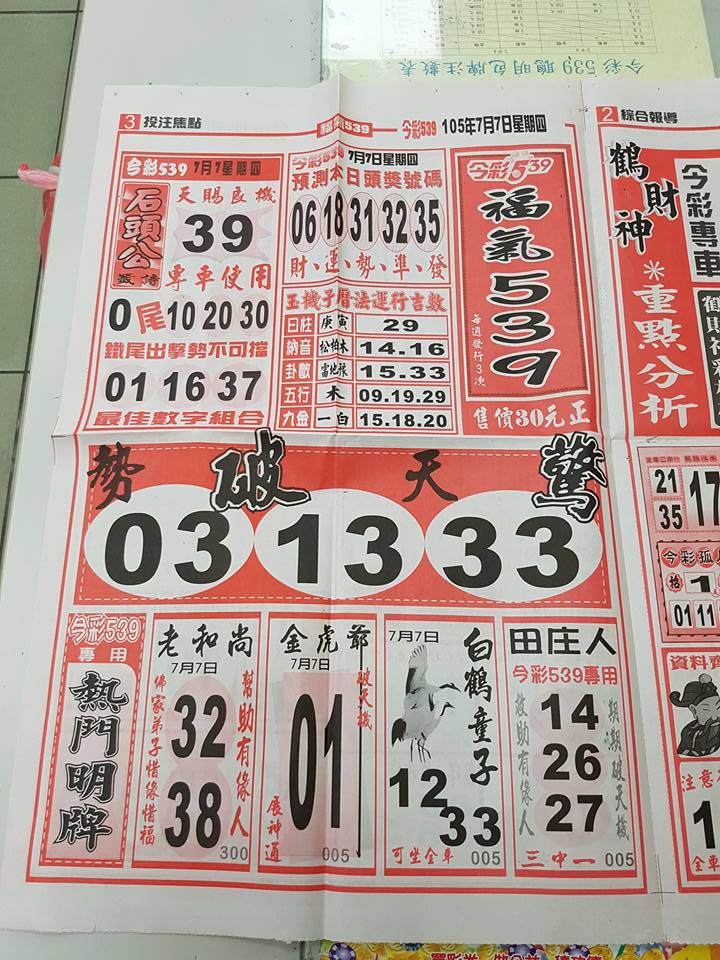 今彩539聰明包牌注數表
3 投注焦點
福氣539
今彩539 105年7月7日星期四
今彩539 7月7星期四
石頭公
天賜良機
39
專車使用
0尾 10 20 30
鐵尾出擊勢不可擋
01 16 37
最佳數字組合
今彩539 7月7日星期四
預測本日頭獎號碼
06 18 31 32 35
財、運、勢、準、發
玉機子曆法運行吉數
日柱 庚寅 29
納音 松柏木 14.16
卦數 15.33
五行 木 09.19.29
九金 一白 15.18.20
今彩539
福氣539
每週發行3次
售價30元正
勢破天驚
03 13 33
今彩539
專用
熱門明牌
老和尚
7月7日
幫助有緣人
佛家弟子惜緣惜福
32
38
300
金虎爺
7月7日
破天機
01
展神通
005
7月7日
白鶴童子
12
33
可坐全車 005
田庄人
今彩539專用
期期破天機
救助有緣人
14
26
27
三中一 005
2 綜合報導
鶴財神
今彩專車
*重點分析
21
35
17
今彩孤
1
01 11
資料齊
注意
1
全車